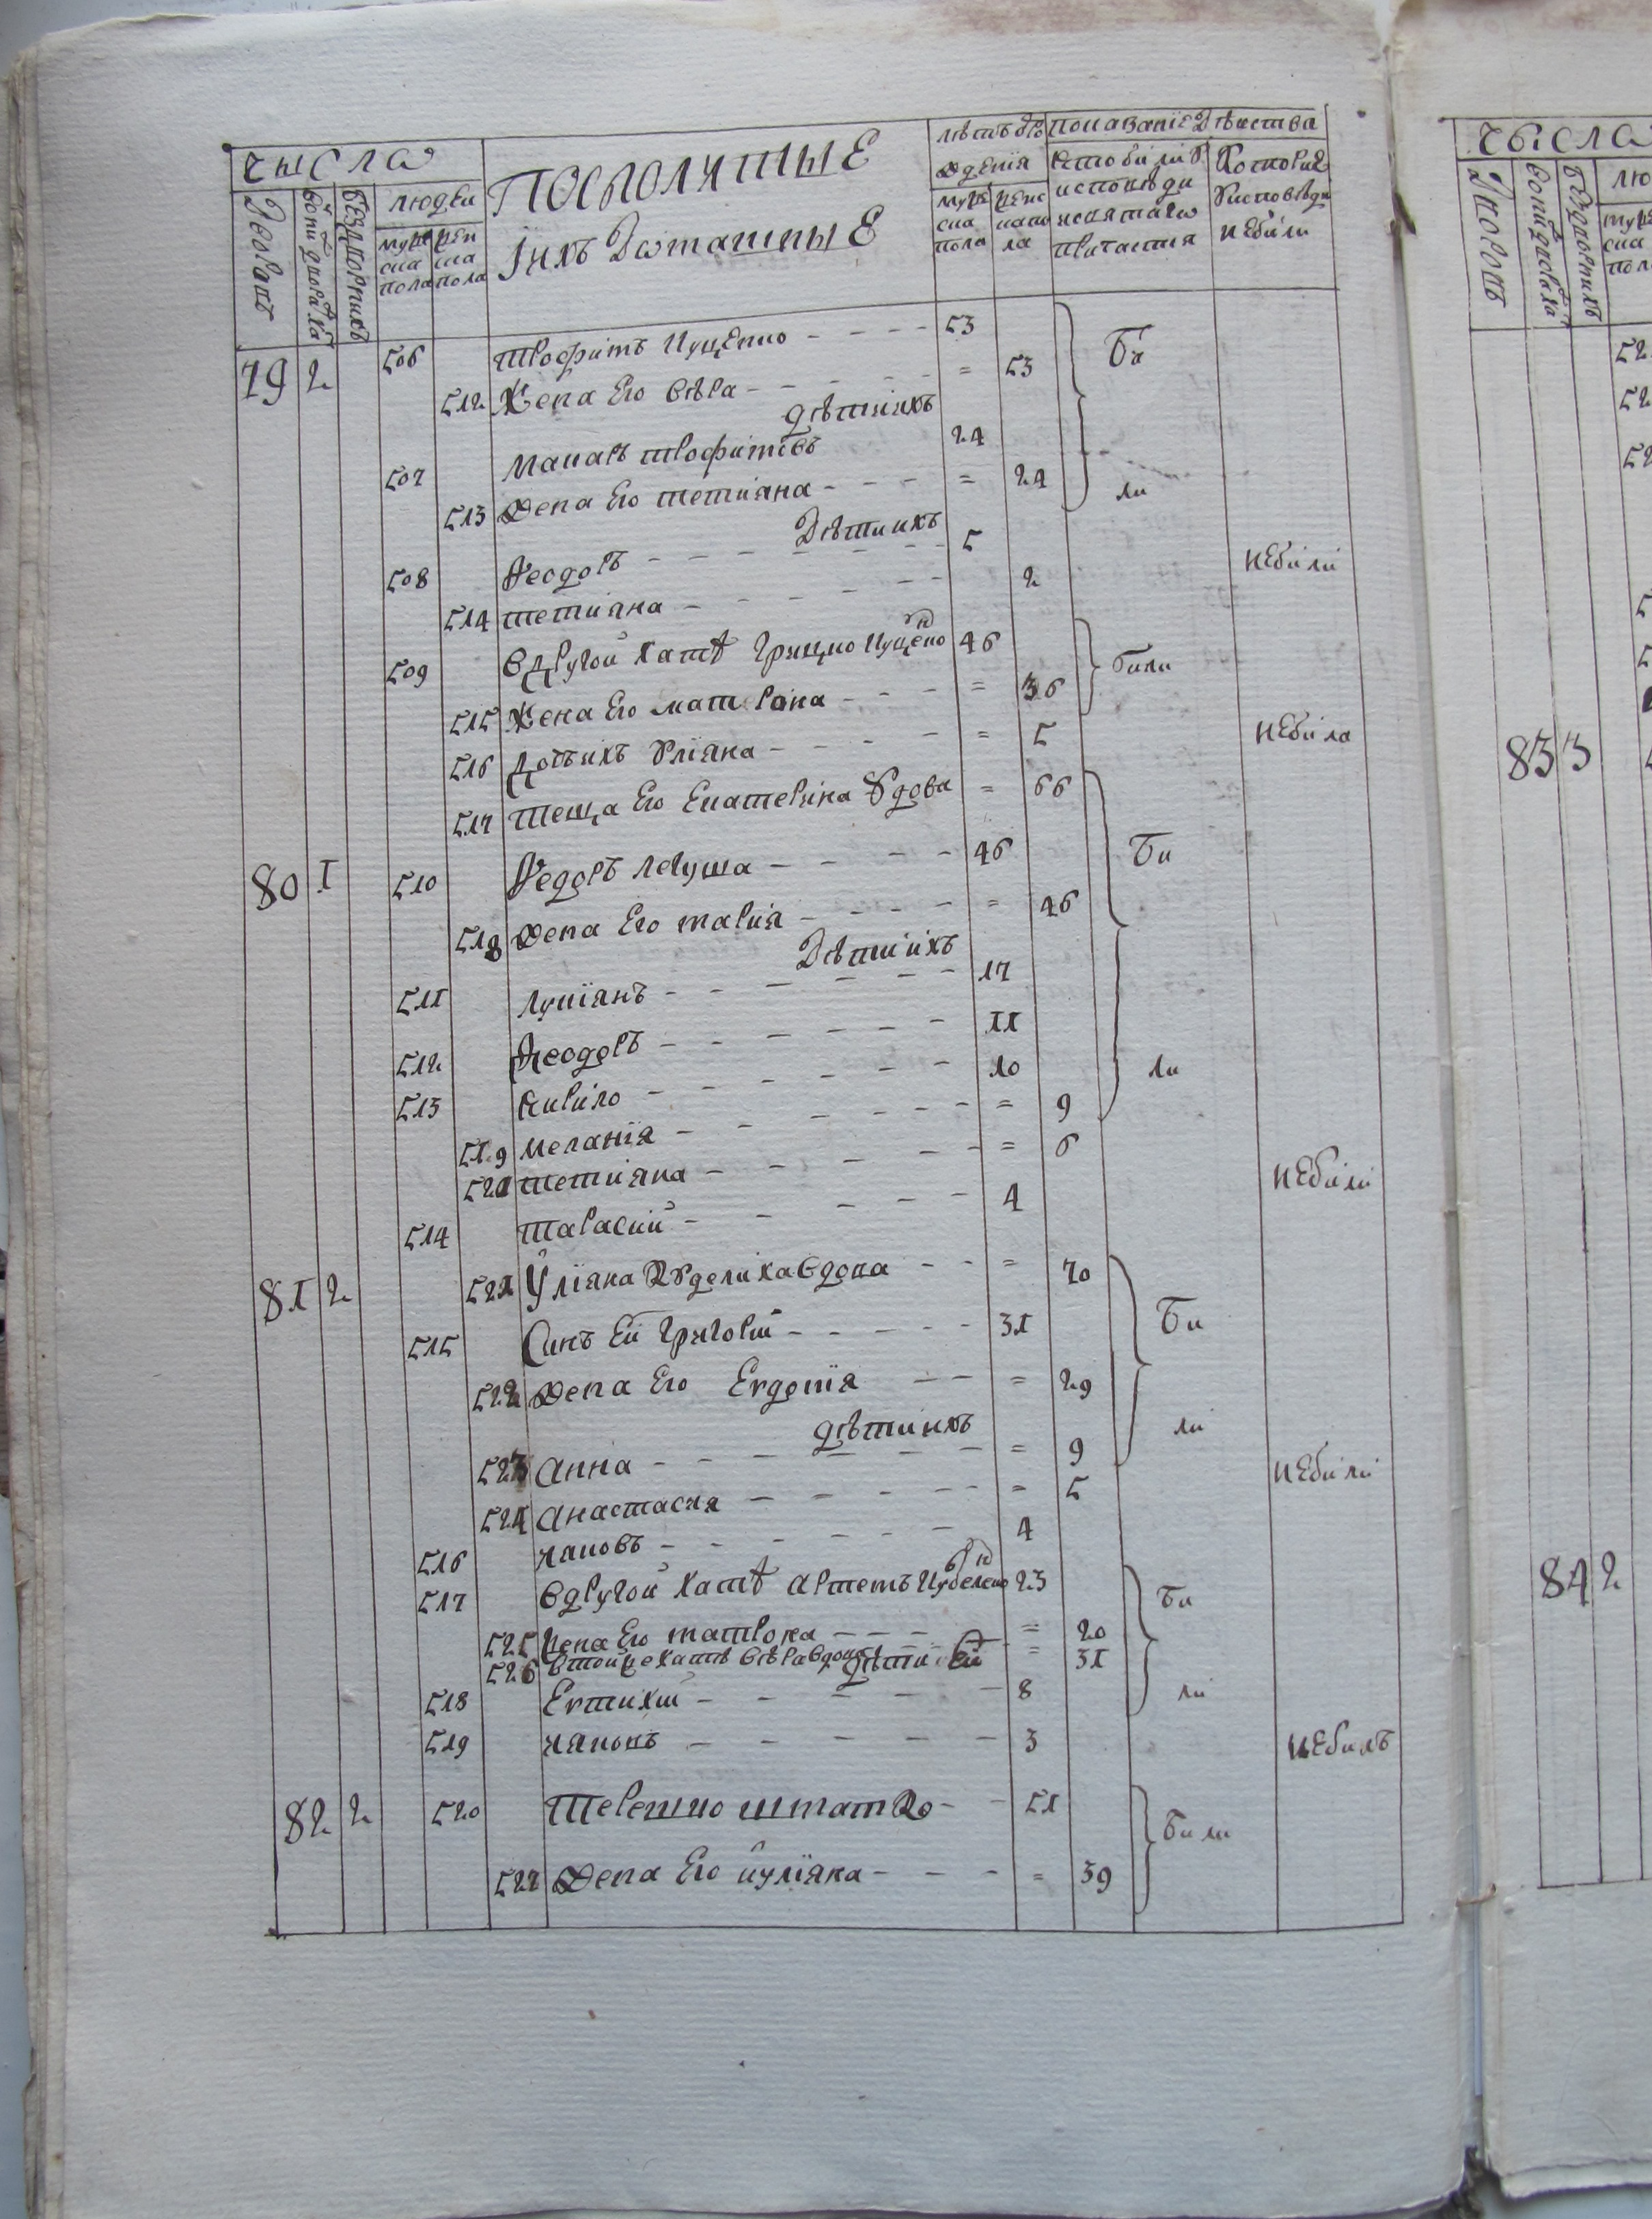 числа
Дворовъ
Бездворнихъ
людеи
мужеска пола
женска пола
Посполитые
Іихъ Домашные
лѣтъ ѿ рождения
мужеска пола
женска пола
Показание Дѣиства
Кто били у исповеди и святаго причастия
Которие у исповѣди небыли
79 2 506 Трофимъ Куценко 53 Би
512 Жена Его Вѣра = 53
дѣти ихъ
507 Макаръ Трофимовъ 24
513 Жена Его тетияна = 24 ли
Дѣти ихъ
508 Феодоръ 5 небили
514 тетияна 2
509 вдругой хатѣ Грицко Куценко 46 били
515 Жена Его матрона = 36
516 Дочь ихъ Улїяна = 5 небила
517 Теща Его Екатерина Удова = 66 Би
80 1 510 Федоръ Левуша 46
518 Жена Его мария = 46
Дѣти ихъ
511 Лукїянъ 17
512 Феодоръ 11
513 Кирило 10 ли
519 Меланїя = 9
520 тетияна = 6 небили
514 Тарасий 4
81 2 521 Улїяна вдова = 70 Би
515 Синъ Ей Григорий 31
522 Жена Его Евдокїя = 29
дѣти ихъ ли
523 Анна = 9 небили
524 Анастасия = 5
516 Яковъ 4
517 вдругой хатѣ Артемъ 23 Би
525 Жена Его матрона = 20
526 втойже хатѣ Вѣра вдова = 31
дѣти Ей
518 Евтихий 8 ли
519 Яковъ 3 небилъ
82 2 520 Терешко 51 били
527 Жена Его иулїяна = 39
числа
Дворовъ
Бездворнихъ
83 3
84 2